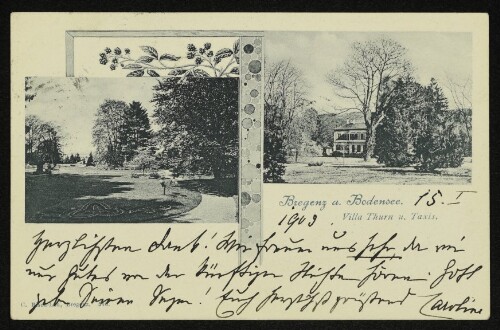 Bregenz a. Bodensee. 15. I
1903 Villa Thurn u. Taxis.
Herzlichsten Dank! Wir freuen uns sehr da wir
nur Gutes von der künftigen Nichte hören. Gott
geb Seinen Segen! Euch herzlichst grüßend Caroline